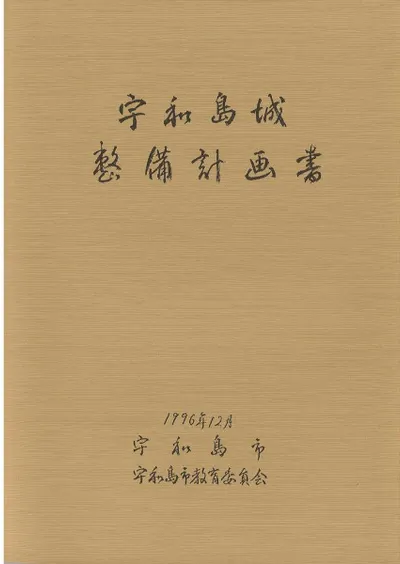 宇和島城
整備計画書
1996年12月
宇和島市
宇和島市教育委員会